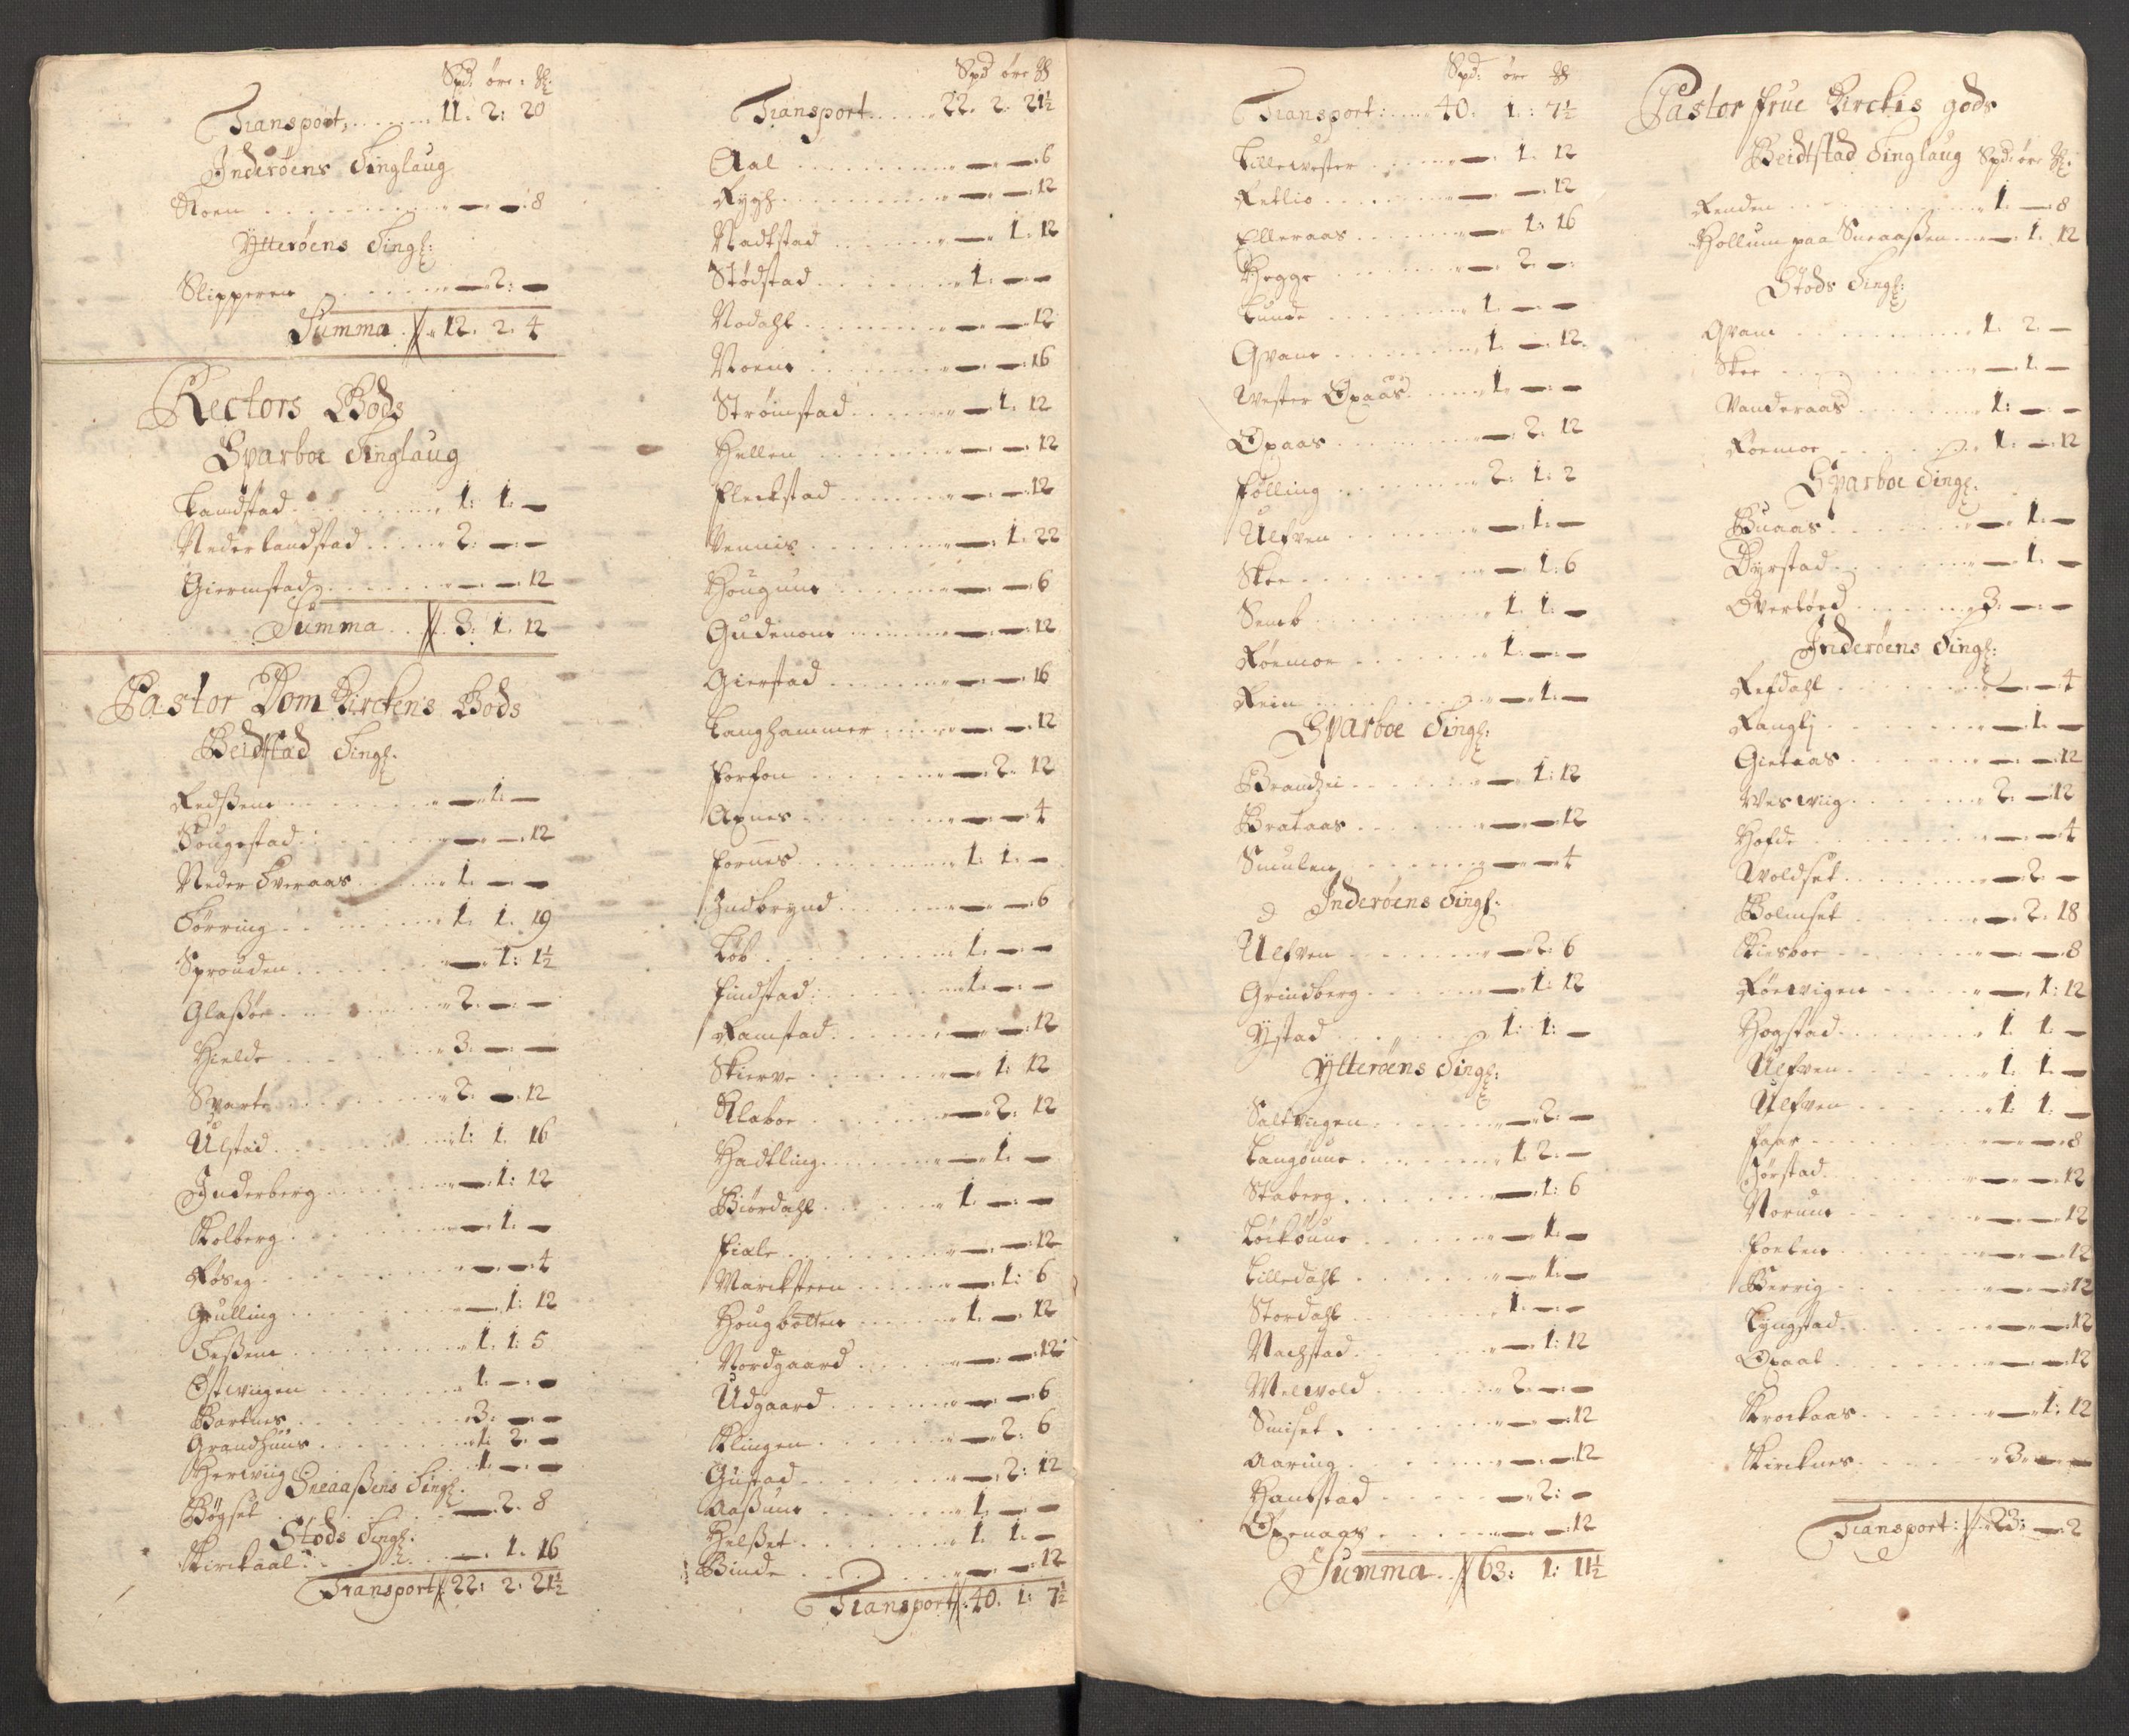 Spd: öre: ℔.
Transport, . . . . . 11. 2: 20
Inderöens Tinglaug
Roen . . . . . — — 8
Ytteröens Tingl:
Slipperen . . . . . — 2: —
Summa . // 12. 2. 4
Rectors Gods
Sparboe Tinglaug
Landstad . . . . . 1: 1. —
Nederlandstad . . . . . 2: — —
Giermstad . . . . . — — 12
Summa . . // 3: 1. 12
Pastor Dom Kirckens Gods
Beidstad Tingl.
Redßem . . . . . — 1. —
Hougestad . . . . . — — 12
Neder Tveraas . . . . . 1. — —
Törring . . . . . 1. 1. 19
Sprouden . . . . . — 1: 1½
Glaßöe . . . . . 2. — —
Hielde . . . . . 3. — —
Svarte . . . . . 2. — 12
Ulstad . . . . . 1: 1. 16
Inderberg . . . . . — 1: 12
Kolberg . . . . . — 1. —
Röseg . . . . . — — 4
Qvulling . . . . . — 1: 12
Seßem . . . . . 1. 1: 5
Östwiigen . . . . . 1. — —
Bartnes . . . . . 3: — —
Grandhuus . . . . . 1: 2. —
Herwiig . . . . . 1. — —
Sneaaßens Tingl.
Bögset . . . . . — 2. 8
Stods Tingl.
Kirckaal . . . . . — 1. 16
Transport // 22: 2: 21½
Spd öre ℔
Transport . . . . . 22. 2. 21½
Aal . . . . . — — 6
Rygh . . . . . — — 12
Nadkstad . . . . . — 1. 12
Stödstad . . . . . 1. — —
Nodahl . . . . . — — 12
Noem . . . . . — — 16
Strömstad . . . . . — 1. 12
Hellen . . . . . — — 12
Fleckstad . . . . . — — 12
Vennis . . . . . — 1. 22
Hougum . . . . . — — 6
Gudenom . . . . . — — 12
Gierstad . . . . . — — 16
Langhammer . . . . . — — 12
Forfon . . . . . — 2. 12
Apnes . . . . . — — 4
Fornes . . . . . 1: 1. —
Indbrynd . . . . . — — 6
Löb . . . . . 1. — —
Findstad . . . . . 1. — —
Ramstad . . . . . — — 12
Skierve . . . . . — 1: 12
Klaboe . . . . . — 2: 12
Hadkling . . . . . — 1. —
Biördahl . . . . . 1. — —
Fixle . . . . . — — 12
Marcksteen . . . . . — 1: 6
Hougbotten . . . . . 1. — 12
Nordgaard . . . . . — — 12
Udgaard . . . . . — — 6
Klingen . . . . . — 2: 6
Gustad . . . . . — 2: 12
Aaßum . . . . . 1. — —
Helßet . . . . . 1. 1. —
Binde . . . . . — — 12
Transport // 40. 1: 7½
Spd: öre ℔
Transport: . . . . . 40. 1.: 7½
Lillewester . . . . . — 1. 12
Retlio . . . . . — — 12
Elleraas . . . . . — 1: 16
Hegge . . . . . — 2. —
Lunde . . . . . 1. — —
Qvam . . . . . 1. — 12.
Wester Opaas . . . . . 1. — —
Opaas . . . . . — 2. 12
Fölling . . . . . 2: 1: 2
Ulfven . . . . . — 1. —
Skee . . . . . — 1: 6
Semb . . . . . 1. 1: —
Röemoe . . . . . 1. — —
Rein . . . . . — 1. —
Sparboe Tingl:
Brandzii . . . . . — 1: 12
Brataas . . . . . — — 12
Smulen . . . . . — — 4
Inderöens Tingl.
Ulfven . . . . . — 2: 6
Grindberg . . . . . — 1: 12
Ystad . . . . . 1: 1: —
Ytteröens Tingl:
Saltviigen . . . . . — 2: —
Langönne . . . . . 1. 2. —
Staberg . . . . . — 1: 6
Löckönne . . . . . — 1. —
Lilledahl . . . . . — 1. —
Stordahl . . . . . 1. — —
Nachstad . . . . . — 1: 12
Melwold . . . . . 2. — —
Smiset . . . . . — — 12
Aaring . . . . . — — 12
Hanstad . . . . . — 2: —
Openaas . . . . . — — 12
Summa . . // 63: 1: 11½
Pastor Frue Kirckes gods
Beidtstad Tinglaug Spd: öre ℔.
Renden . . . . . 1. — 8
Hollum paa Sneaaßen . . — 1. 12
Stods Tingl:
Qvam . . . . . 1. 2. —
Skee . . . . . — 1. —
Vanderaas . . . . . 1: — —
Röemoe . . . . . 1. — 12
Sparboe Tingl.
Buaas . . . . . — 1. —
Dyrstad . . . . . — 1. —
Overloed . . . . . 3. — —
Inderöens Tingl:
Refdahl . . . . . — — 4
Ranglj . . . . . — 1. —
Gietaas . . . . . — — 12
Weswiig . . . . . 2. — 12
Hofde . . . . . — — 4
Woldset . . . . . — 2. —
Bolmset . . . . . — 2. 18
Kiesboe . . . . . — — 8
Röewigen . . . . . — 1: 12
Hogstad . . . . . 1. 1. —
Ulfven . . . . . 1: 1. —
Ulfven . . . . . 1: 1. —
Faar . . . . . — — 8
Jörstad . . . . . — — 12
Norum . . . . . — — 12
Foelen . . . . . — — 12
Berrig . . . . . — — 12
Lyngstad . . . . . — — 12
Opaal . . . . . — — 12
Krockaas . . . . . — 1: 12
Kircknes . . . . . 3 — —
Transport: // 23: — 2